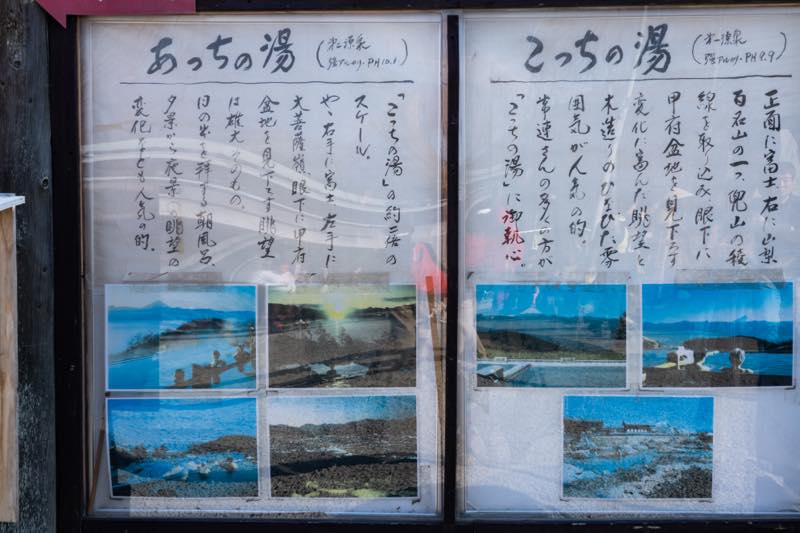 あっちの湯
(第二源泉
強アルカリ・PH10.1)
「こっちの湯」の約二倍の
スケール。
やや右手に富士、左手に
大菩薩嶺、眼下に甲府
盆地を見下ろす眺望
は雄大そのもの。
日の出を拝する朝風呂
夕景から夜景への眺望の
変化なども人気の的。
こっちの湯
(第一源泉
強アルカリ・PH9.9)
正面に富士、右に山梨
百名山の一つ、兜山の稜
線を取り込み、眼下に
甲府盆地を見下ろす
変化に富んだ眺望と
木造りのひなびた雰
囲気が人気の的。
常連さんの多くの方が
「こっちの湯」に御執心。